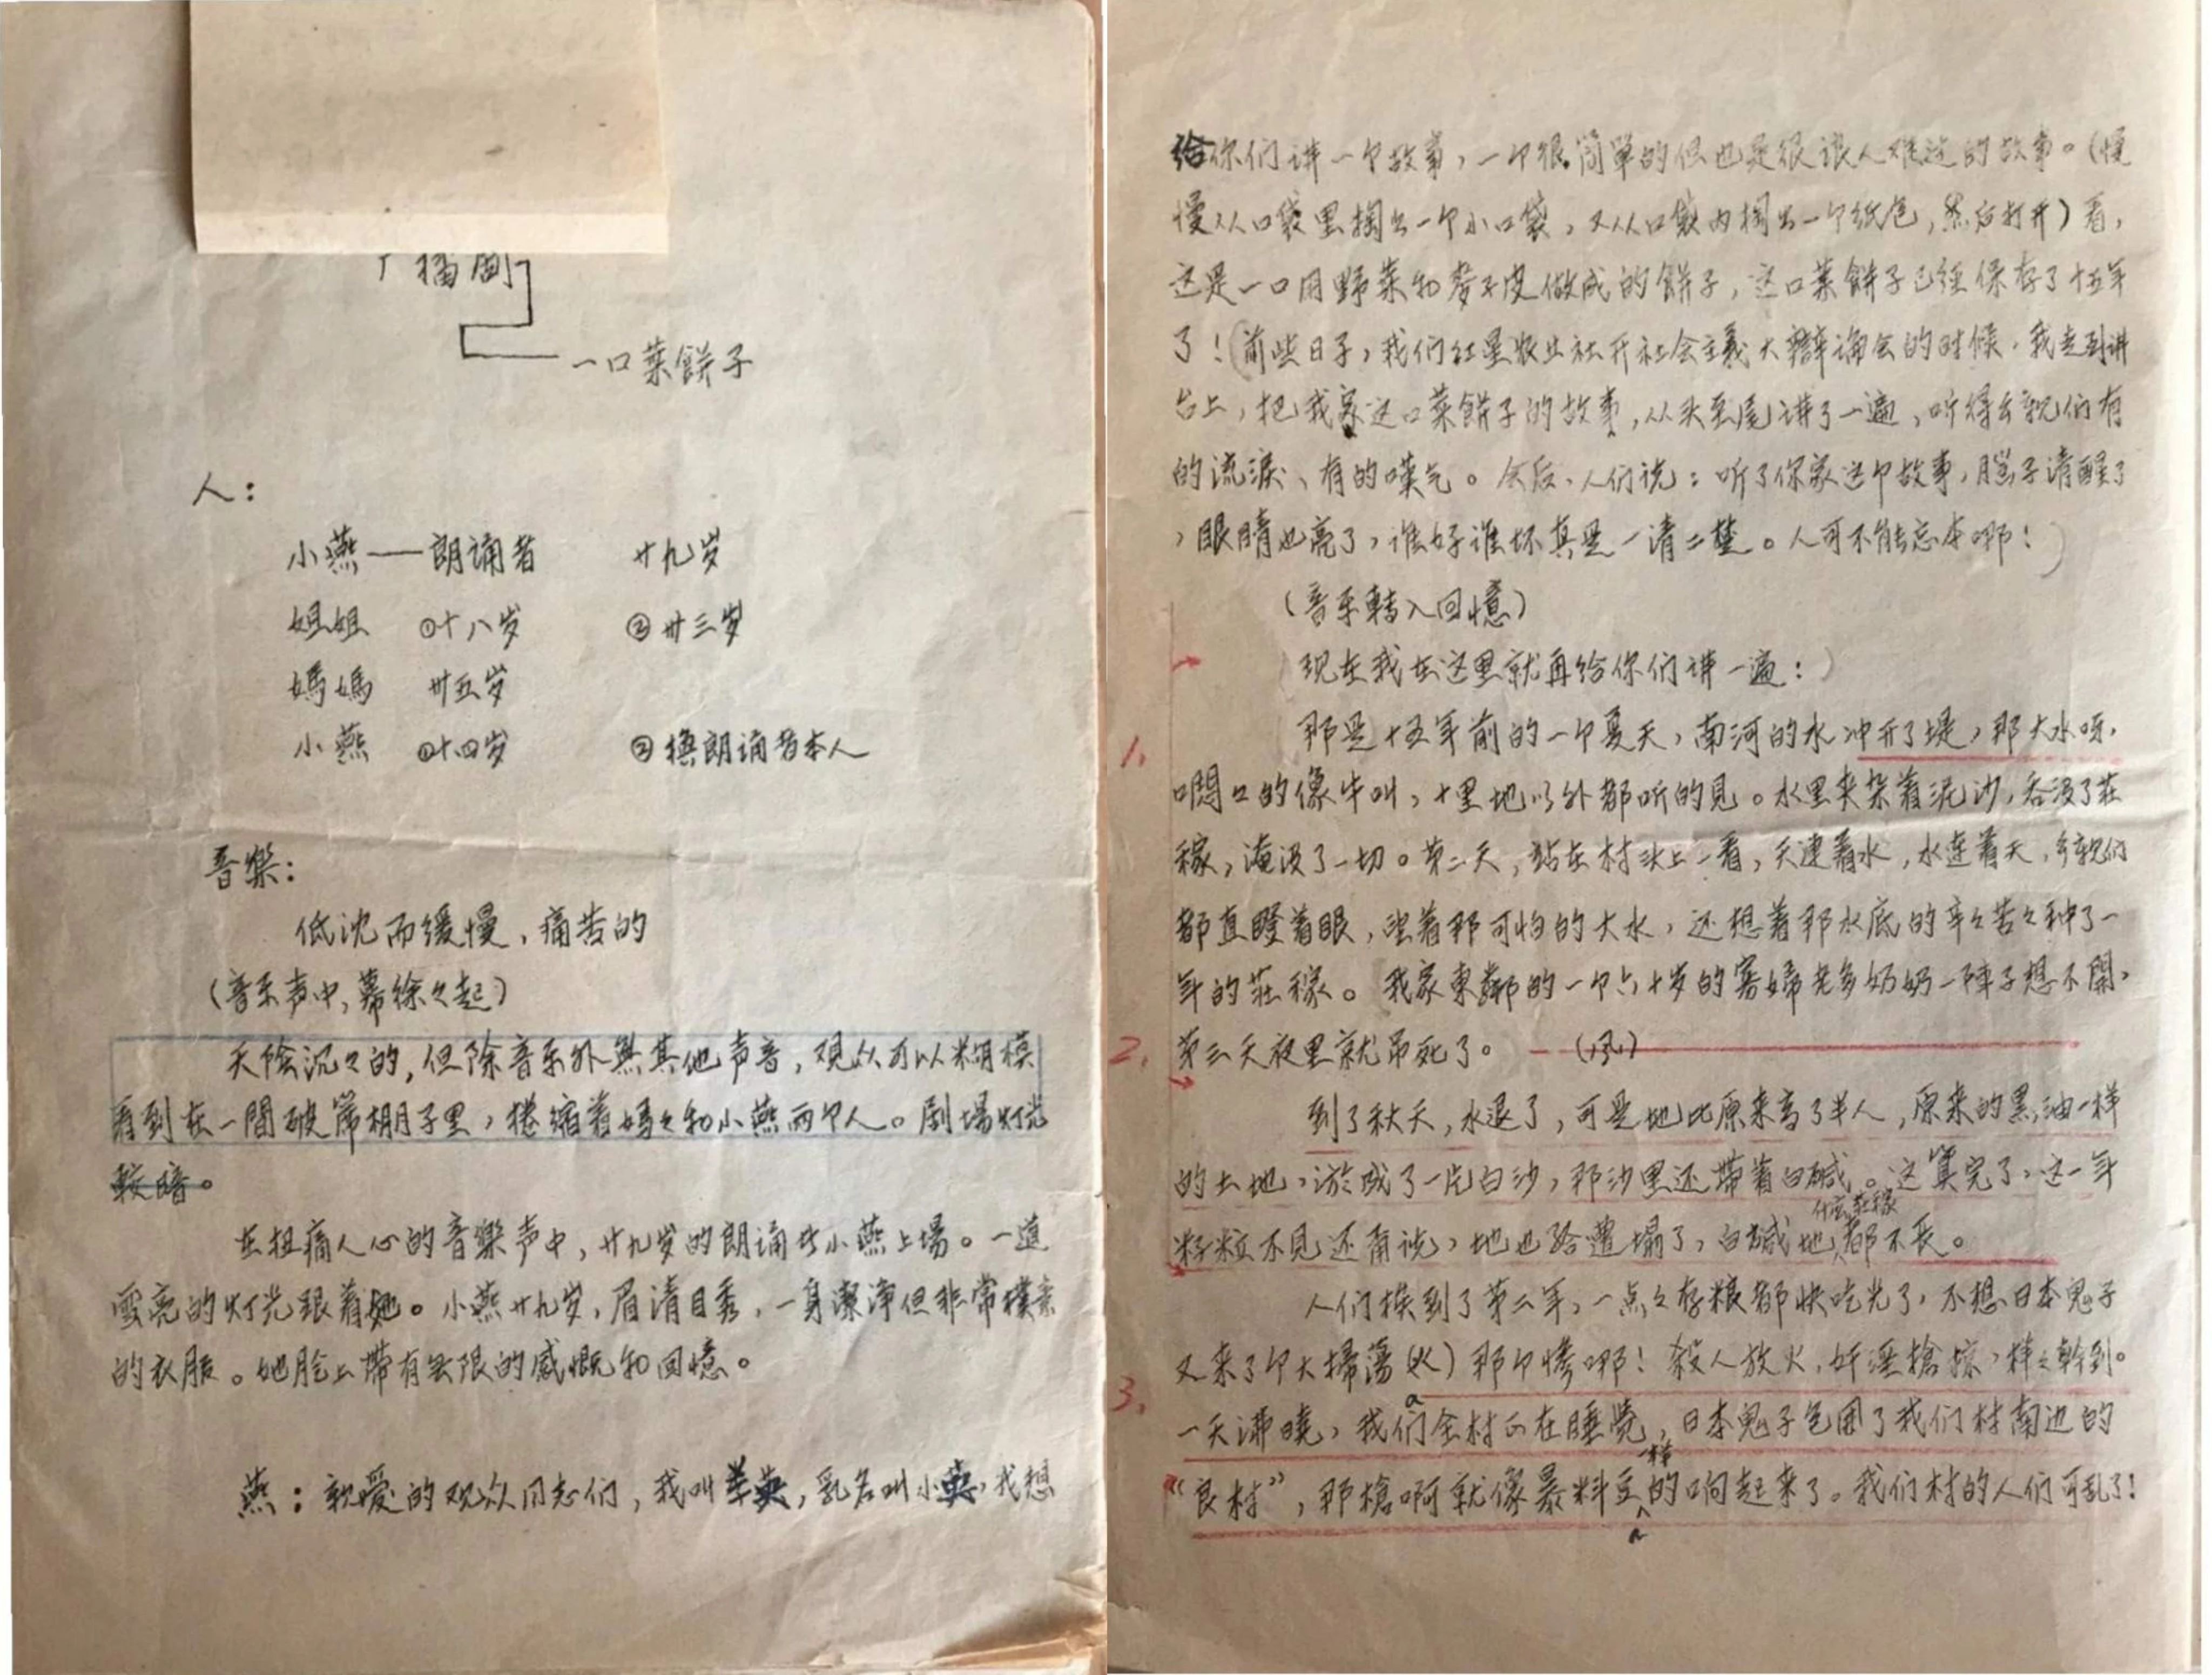 广播剧
一口菜餅子
人：
小燕——朗誦者 廿九岁
姐姐 ①十八岁 ②廿三岁
媽媽 卅五岁
小燕 ①十四岁 ②換朗诵者本人
音樂：
低沈而缓慢，痛苦的
（音乐声中，幕徐々起）
天陰沉々的，但除音乐外無其他声音，观众可以糊模
看到在一間破席棚子里，捲缩着媽々和小燕两个人。剧場灯光
較暗。
在扭痛人心的音樂声中，廿九岁的朗誦者小燕上場。一道
雪亮的灯光跟着她。小燕廿九岁，眉清目秀，一身潔淨但非常樸素
的衣服。她脸上带有無限的感慨和回憶。
燕：親愛的观众同志们，我叫 英，乳名叫小英，我想
给你们讲一个故事，一个很简單的但也是很讓人难过的故事。（慢
慢从口袋里掏出一个小口袋，又从口袋内掏出一个纸包，然后打开）看，
这是一口用野菜和麦子皮做成的餅子，这口菜餅子已经保存了十五年
了！（前些日子，我们红星农业社开社会主義大辯論会的时候，我走到讲
台上，把我家这口菜餅子的故事，从头至尾讲了一遍，听得乡親们有
的流淚、有的嘆气。会后，人们说：听了你家这个故事，脑子清醒了
，眼睛也亮了，谁好谁坏真是一清二楚。人可不能忘本啊！）
（音乐轉入回憶）
（现在我在这里就再给你们讲一遍：）
1. 那是十五年前的一个夏天，南河的水冲开了堤，那大水呀，
嗯々的像牛叫，十里地以外都听的见。水里夹杂着泥沙，吞没了莊
稼，淹没了一切。第二天，站在村头上一看，天連着水，水連着天，乡親们
都直瞪着眼，望着那可怕的大水，还想着那水底的辛々苦々种了一
年的莊稼。我家東鄰的一个六十岁的寡婦老乡奶奶一陣子想不開，
2. 第三天夜里就吊死了。 （风）
到了秋天，水退了，可是地比原来高了半人，原来的黑油一样
的土地，淤成了一片白沙，那沙里还带着白碱。这算完了，这一年
什么莊稼
籽粒不见还甭说，地也给遭塌了，白碱地都不长。
人们挨到了第二年，一点々存粮都快吃光了，不想日本鬼子
又来了个大掃蕩（火）那个惨啊！殺人放火，奸淫搶掠，样々幹到。
3. 一天沸曉，我们全村正在睡觉，日本鬼子包围了我们村南边的
一样
“良村”，那槍啊就像暴料豆的响起来了。我们村的人们可乱了！